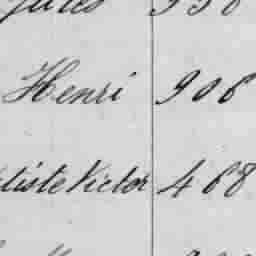 Jules
Henri 906
tiste Victor 468